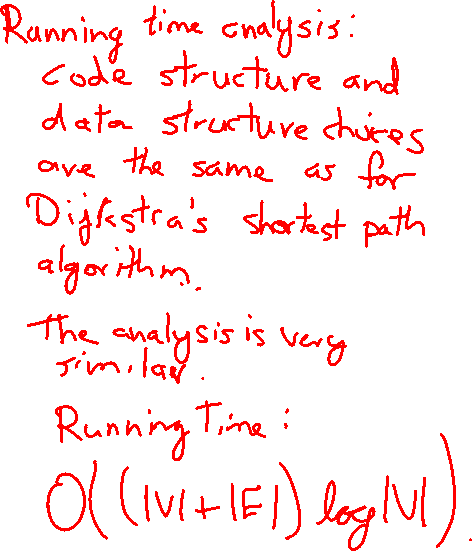 Running time analysis:
code structure and
data structure choices
are the same as for
Dijkstra's shortest path
algorithm.
The analysis is very
similar.
Running Time:
O((|V|+|E|) log|V|).